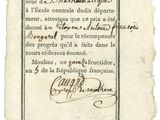 à l'École centrale dudit départe-
ment, attestons que ce prix a été
donné au Citoyen Antoine François
Mongaret pour le récompenser
des progrès qu'il a faits dans le
cours ci-dessus énoncé.
Moulins, ce fructidor,
an 5 de la République française.